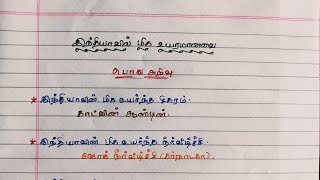 இந்தியாவில் மிக உயரமானவை
பொது அறிவு
* இந்தியாவின் மிக உயர்ந்த சிகரம்.
காட்வின் ஆஸ்டின்.
* இந்தியாவின் மிக உயர்ந்த நீர்வீழ்ச்சி
ஜோக் நீர்வீழ்ச்சி (கர்நாடகா).